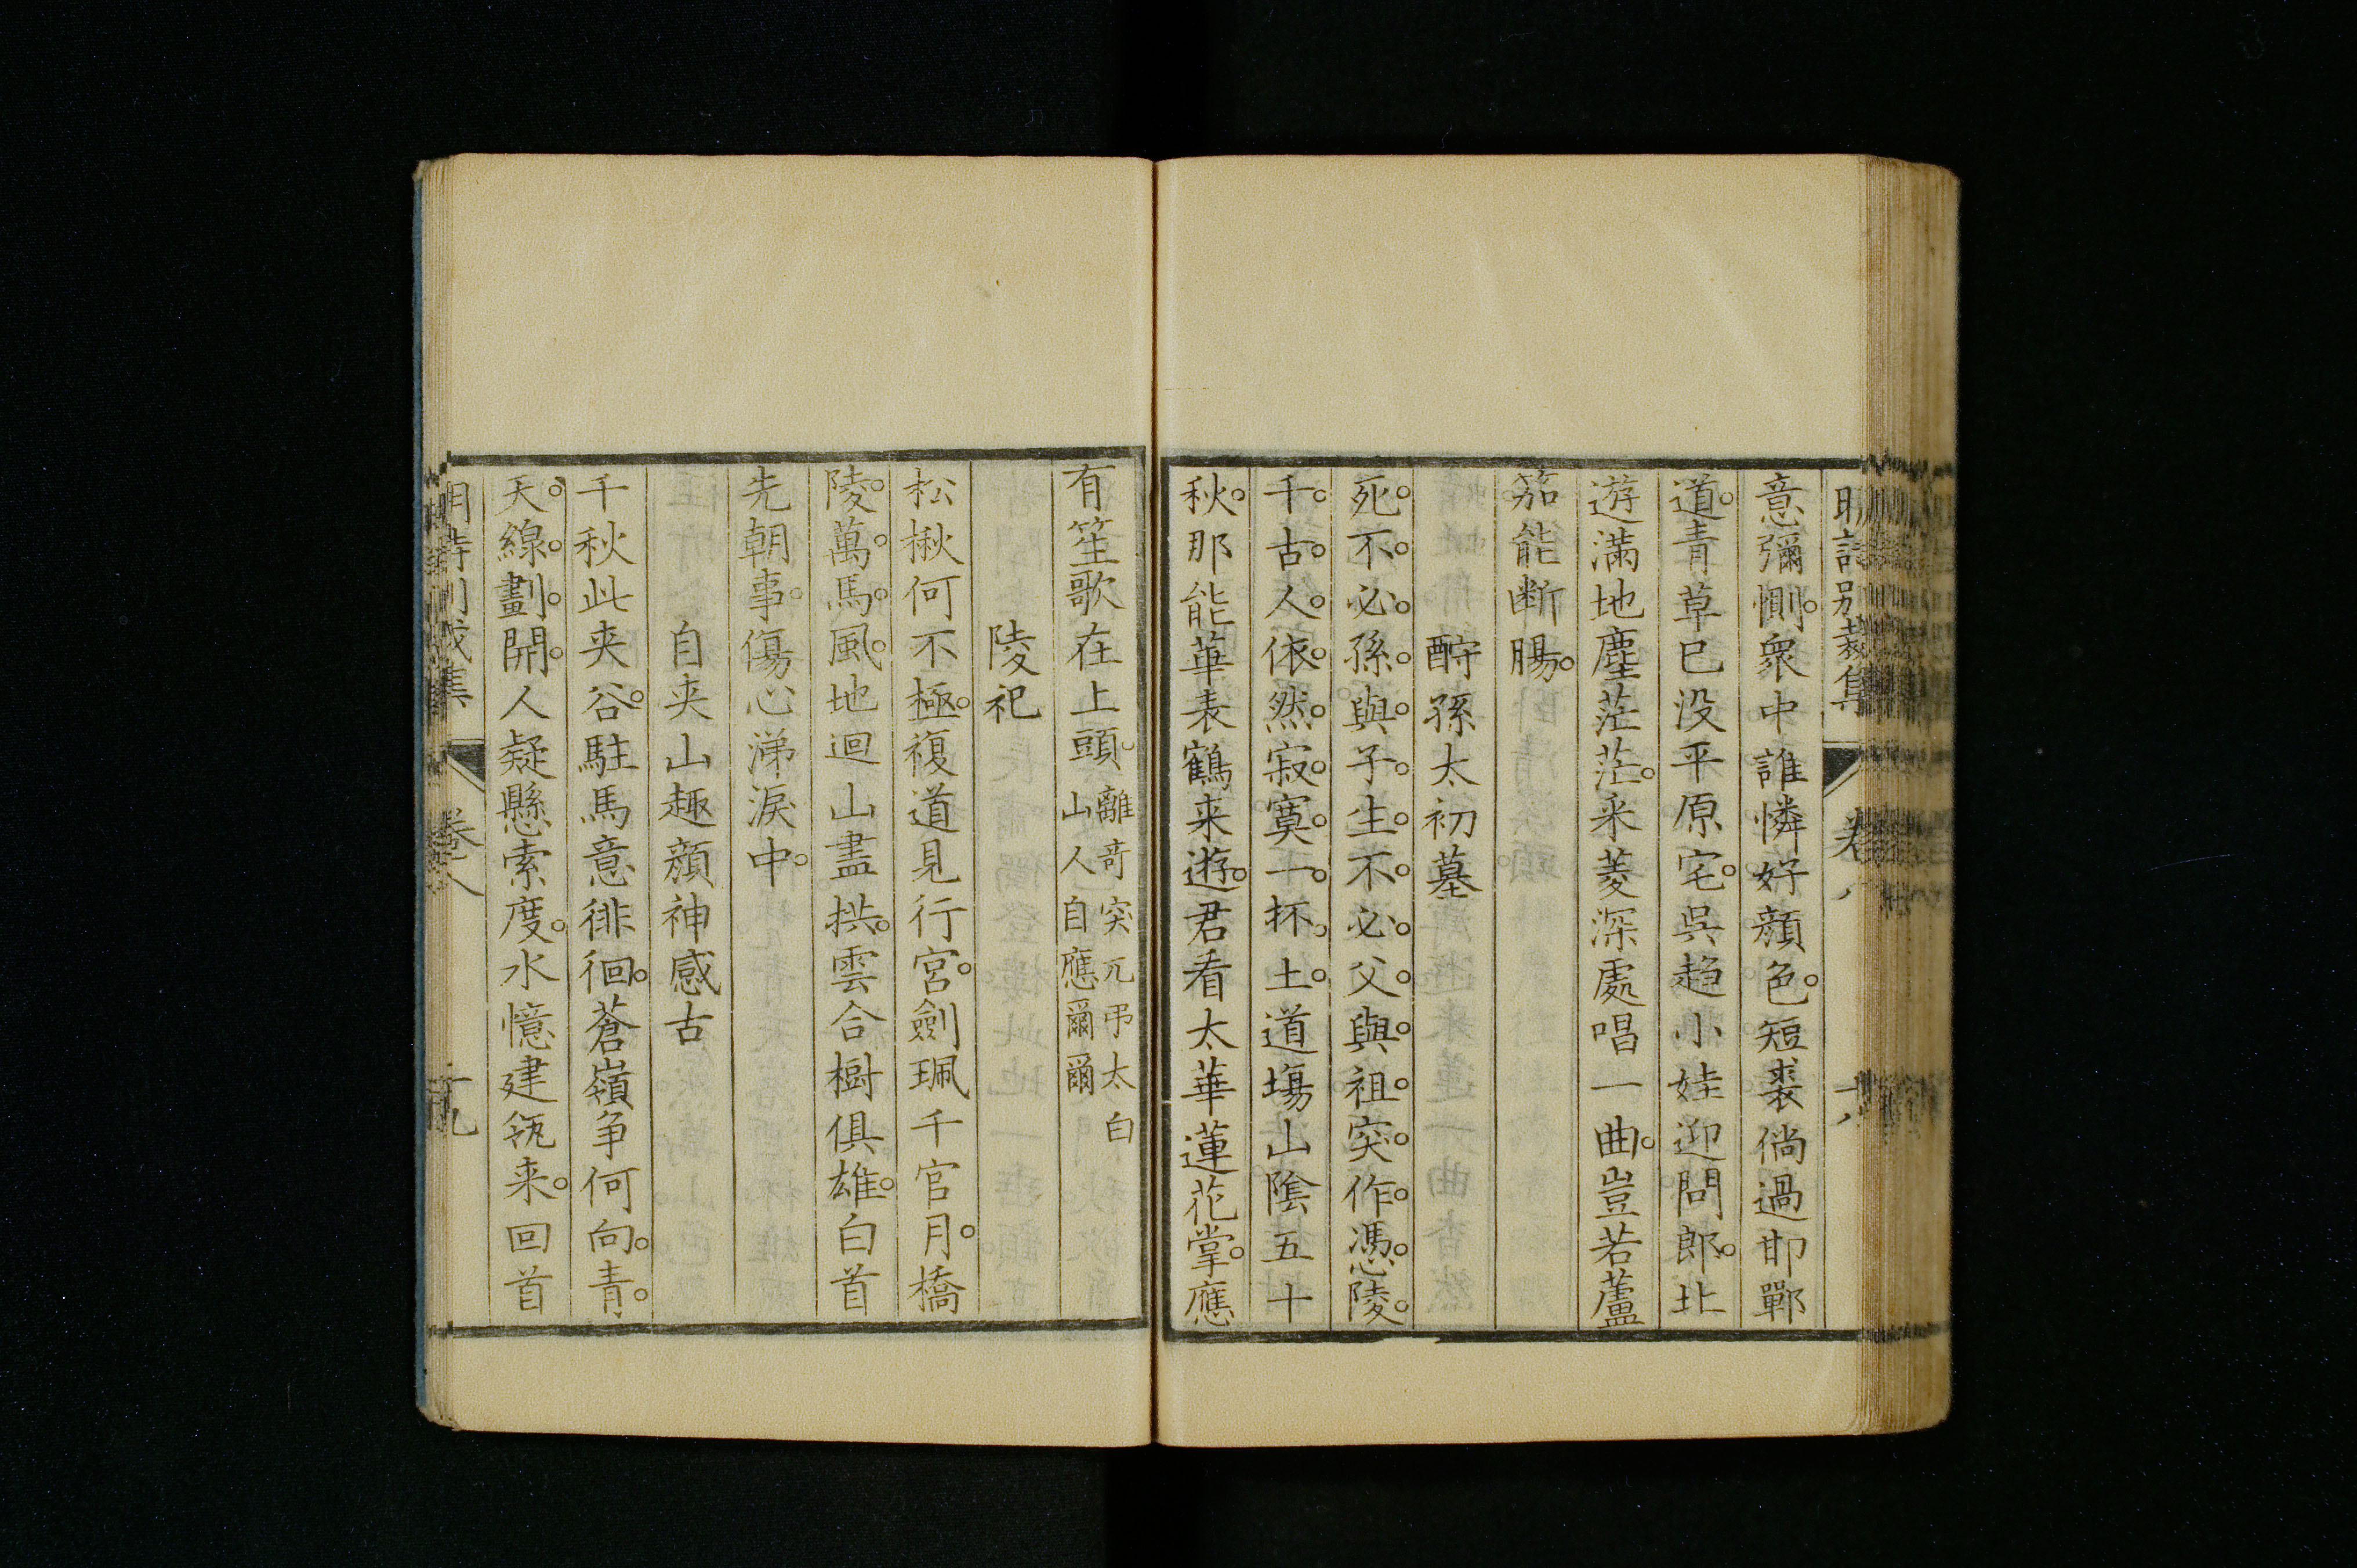 明詩別裁集 卷八 十八
意彌惻衆中誰憐好顔色短裘倘過邯鄲
道青草已没平原宅吳趋小娃迎問郎北
遊滿地塵茫茫采菱深處唱一曲豈若蘆
笳能断腸
酹孫太初墓
死不必孫與子生不必父與祖突作憑陵
千古人依然寂寞一抔土道塲山陰五十
秋那能華表鶴来遊君看太華蓮花掌應
有笙歌在上頭
離奇突兀弔太白
山人自應爾爾
陵祀
松楸何不極複道見行宮劍珮千官月橋
陵萬馬風地迴山盡拱雲合樹俱雄白首
先朝事傷心涕淚中
自夾山趣顔神感古
千秋此夾谷駐馬意徘徊蒼嶺争何向青
天線劃開人疑懸索度水憶建瓴来回首
明詩別裁集 卷八 十九